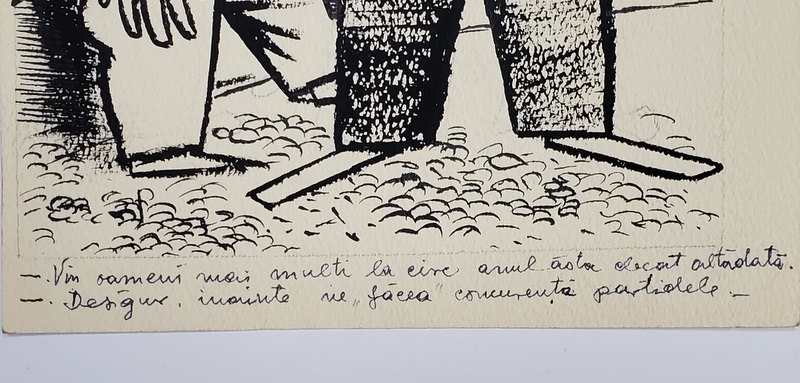 —. Vin oameni mai multi la circ anul ăsta decat altădată.
—. Desigur, inainte ne „făcea" concurență partidele. —